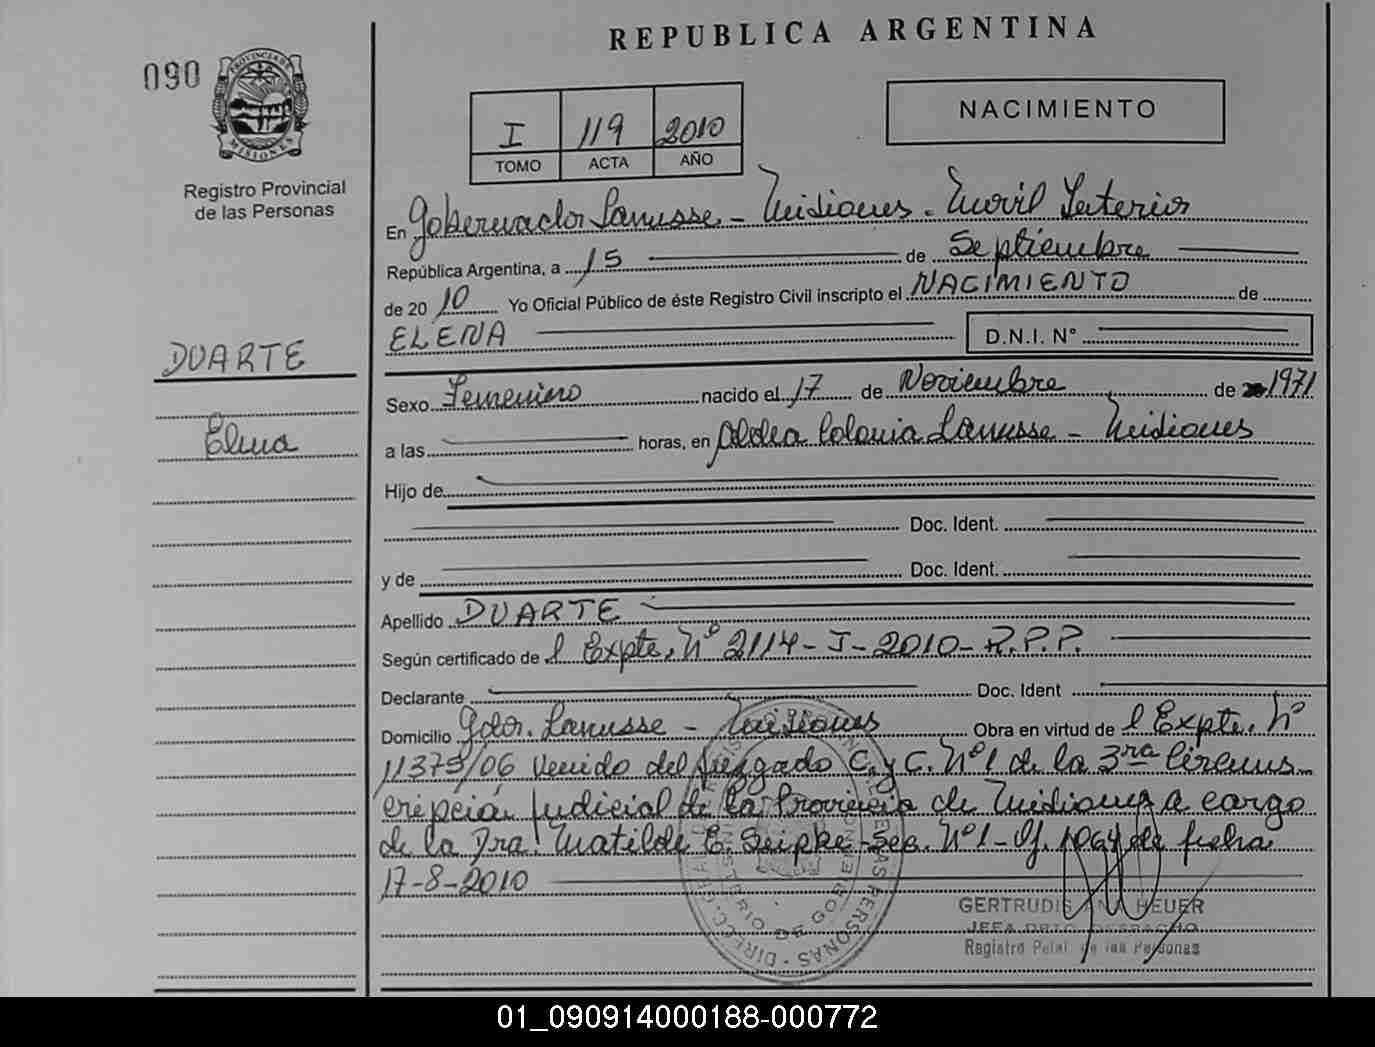 REPUBLICA ARGENTINA
090
PROVINCIA DE MISIONES
Registro Provincial
de las Personas
I 119 2010
TOMO ACTA AÑO
NACIMIENTO
En Gobernador Lanusse - Misiones - Movil Interior
República Argentina, a 15 de Septiembre
de 2010 Yo Oficial Público de éste Registro Civil inscripto el NACIMIENTO de
ELENA D.N.I. N°
DUARTE
Elena
Sexo Femenino nacido el 17 de Noviembre de 1971
a las horas, en Aldea Colonia Lanusse - Misiones
Hijo de
Doc. Ident.
y de Doc. Ident.
Apellido DUARTE
Según certificado de l Expte. Nº 2114-J-2010-R.P.P.
Declarante Doc. Ident
Domicilio Gdor. Lanusse - Misiones Obra en virtud de l Expte. Nº
11379/06 Venido del Juzgado C. y C. Nº1 de la 3ra Circuns
cripción Judicial de la Provincia de Misiones a cargo
de la Dra. Matilde E. Seipke - Sec. Nº1 - Of. de fecha
17-8-2010
GERTRUDIS ANA HEUER
JEFA DPTO DESPACHO
Registro Pcial. de las Personas
01_090914000188-000772